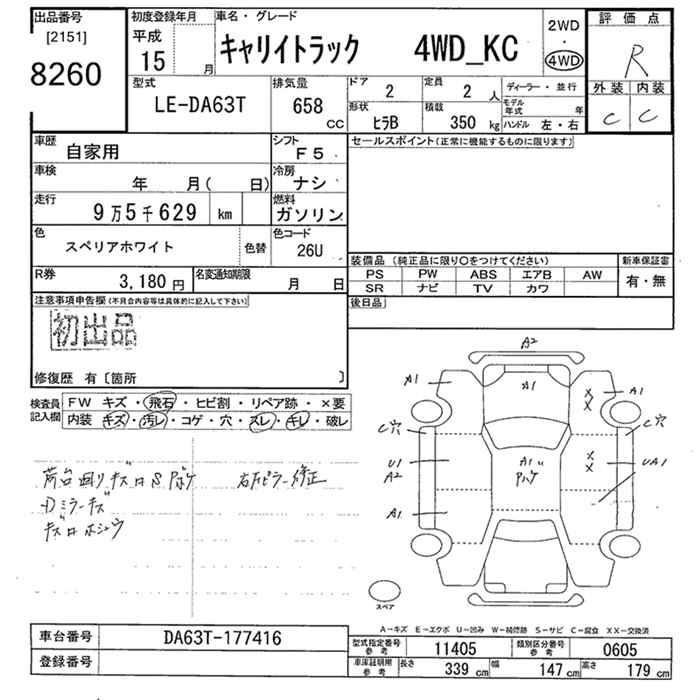 出品番号
[2151]
8260
初度登録年月
平成
15 月
車名・グレード
キャリイトラック 4WD_KC
2WD
・
4WD
評価点
R
外装 内装
C C
型式
LE-DA63T
排気量
658 CC
ドア
2
定員
2 人
形状
ヒラB
積載
350 kg
ディーラー・並行
モデル年式 年
ハンドル 左・右
車歴
自家用
シフト
F5
車検
年 月( 日)
冷房
ナシ
走行
9万5千629 km
燃料
ガソリン
色
スペリアホワイト
色替
色コード
26U
R券
3,180 円
名変通知期限
月 日
セールスポイント(正常に機能するものに限ります)
装備品 (純正品に限り○をつけてください)
新車保証書
PS PW ABS エアB AW
SR ナビ TV カワ
有・無
後日品
注意事項申告欄(不具合内容等は具体的に記入して下さい)
初出品
修復歴 有〔箇所 〕
検査員記入欄
FW キズ・飛石・ヒビ割・リペア跡・×要
内装 キズ・汚レ・コゲ・穴・スレ・キレ・破レ
荷台回りキズロSアトボケ
右Fピラー修正
ミラーキズ
キズロホシュウ
A2
A1
A1
A1
X
X
C穴
C穴
U1
A2
A1
X
X
UA1
A1
スペア
A－キズ E－エクボ U－凹み W－補修跡 S－サビ C－腐食 XX－交換済
車台番号
DA63T-177416
登録番号
型式指定番号
参考
11405
類別区分番号
参考
0605
車庫証明用
参考
長さ 339 cm
幅 147 cm
高さ 179 cm